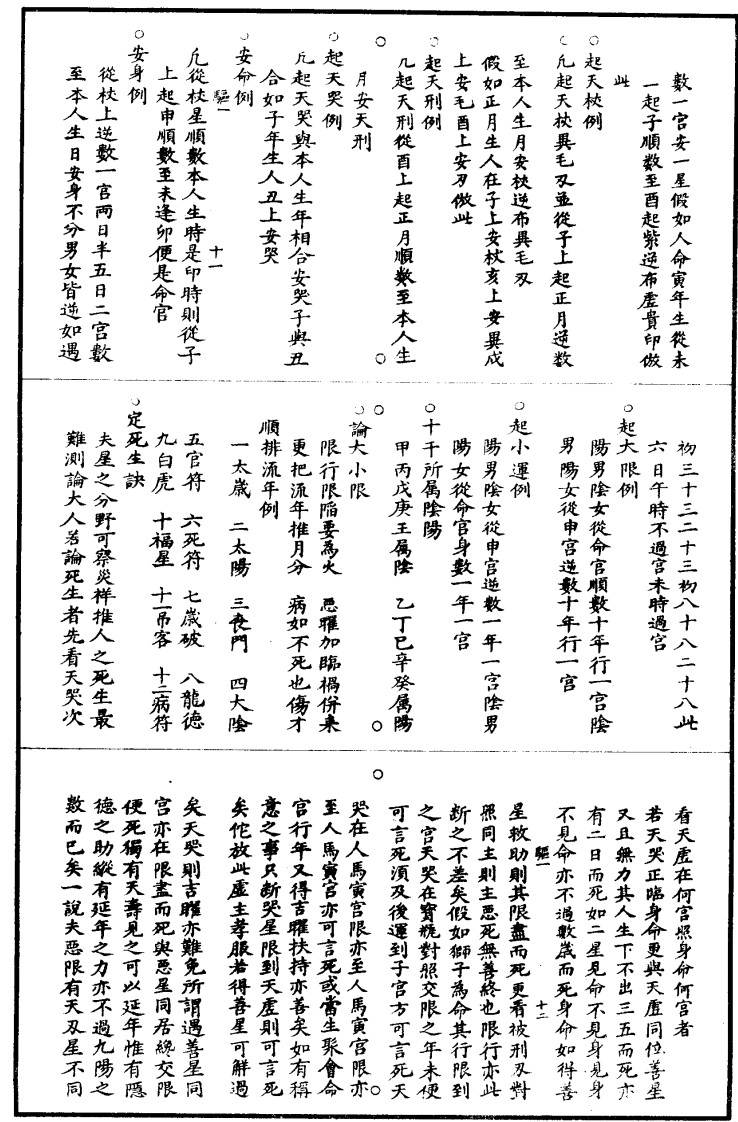 數一宮安一星假如人命寅年生從未
一起子順數至酉起紫逆布虛貴印倣
此
○起天杖例
○凡起天杖異毛刃並從子上起正月逆數
至本人生月安杖逆布異毛刃
假如正月生人在子上安杖亥上安異戌
上安毛酉上安刃倣此
○起天刑例
凡起天刑從酉上起正月順數至本人生
月安天刑
○起天哭例
凡起天哭與本人生年相合安哭子與丑
合如子年生人丑上安哭
○安命例
驅一
十一
凡從杖星順數本人生時是印時則從子
上起申順數至未逢卯便是命宮
○安身例
從杖上逆數一宮兩日半五日二宮數
至本人生日安身不分男女皆逆如遇
初三十三二十三初八十八二十八此
六日午時不過宮未時過宮
○起大限例
陽男陰女從命宮順數十年行一宮陰
男陽女從申宮逆數十年行一宮
○起小運例
陽男陰女從申宮逆數一年一宮陰男
陽女從命宮身數一年一宮
○十干所属陰陽
甲丙戊庚王属陰 乙丁巳辛癸属陽
○論大小限
限行限陷要為火 惡曜加臨禍併來
更把流年推月分 病如不死也傷才
順排流年例
一太歲 二太陽 三丧門 四大陰
五官符 六死符 七歲破 八龍德
九白虎 十福星 十一吊客 十二病符
○定死生訣
夫星之分野可察災祥推人之死生最
難測論大人若論死生者先看天哭次
看天虛在何宮照身命何宮者
若天哭正臨身命更與天虛同位善星
又且無力其人生下不出三五而死亦
有二日而死如二星見命不見身見身
不見命亦不過數歲而死身命如得善
驅一
十二
星救助則其限盡而死更看被刑刃對
照同主則主惡死無善終也限行亦此
断之不差矣假如獅子為命其行限到
之宮天哭在寳瓶對照交限之年未便
可言死須及後運到子宮方可言死天
哭在人馬寅宮限亦至人馬寅宮限亦
至人馬寅宮亦可言死或當生聚會命
宮行年又得吉曜扶持亦善矣如有稱
意之事只断哭星限到天虛則可言死
矣佗放此虛主孝服若得善星可解過
矣天哭則吉曜亦難免所謂遇善星同
宮亦在限盡而死與惡星同居終交限
便死獨有天壽見之可以延年惟有隱
德之助縱有延年之力亦不過九陽之
數而已矣一說夫惡限有天刃星不同